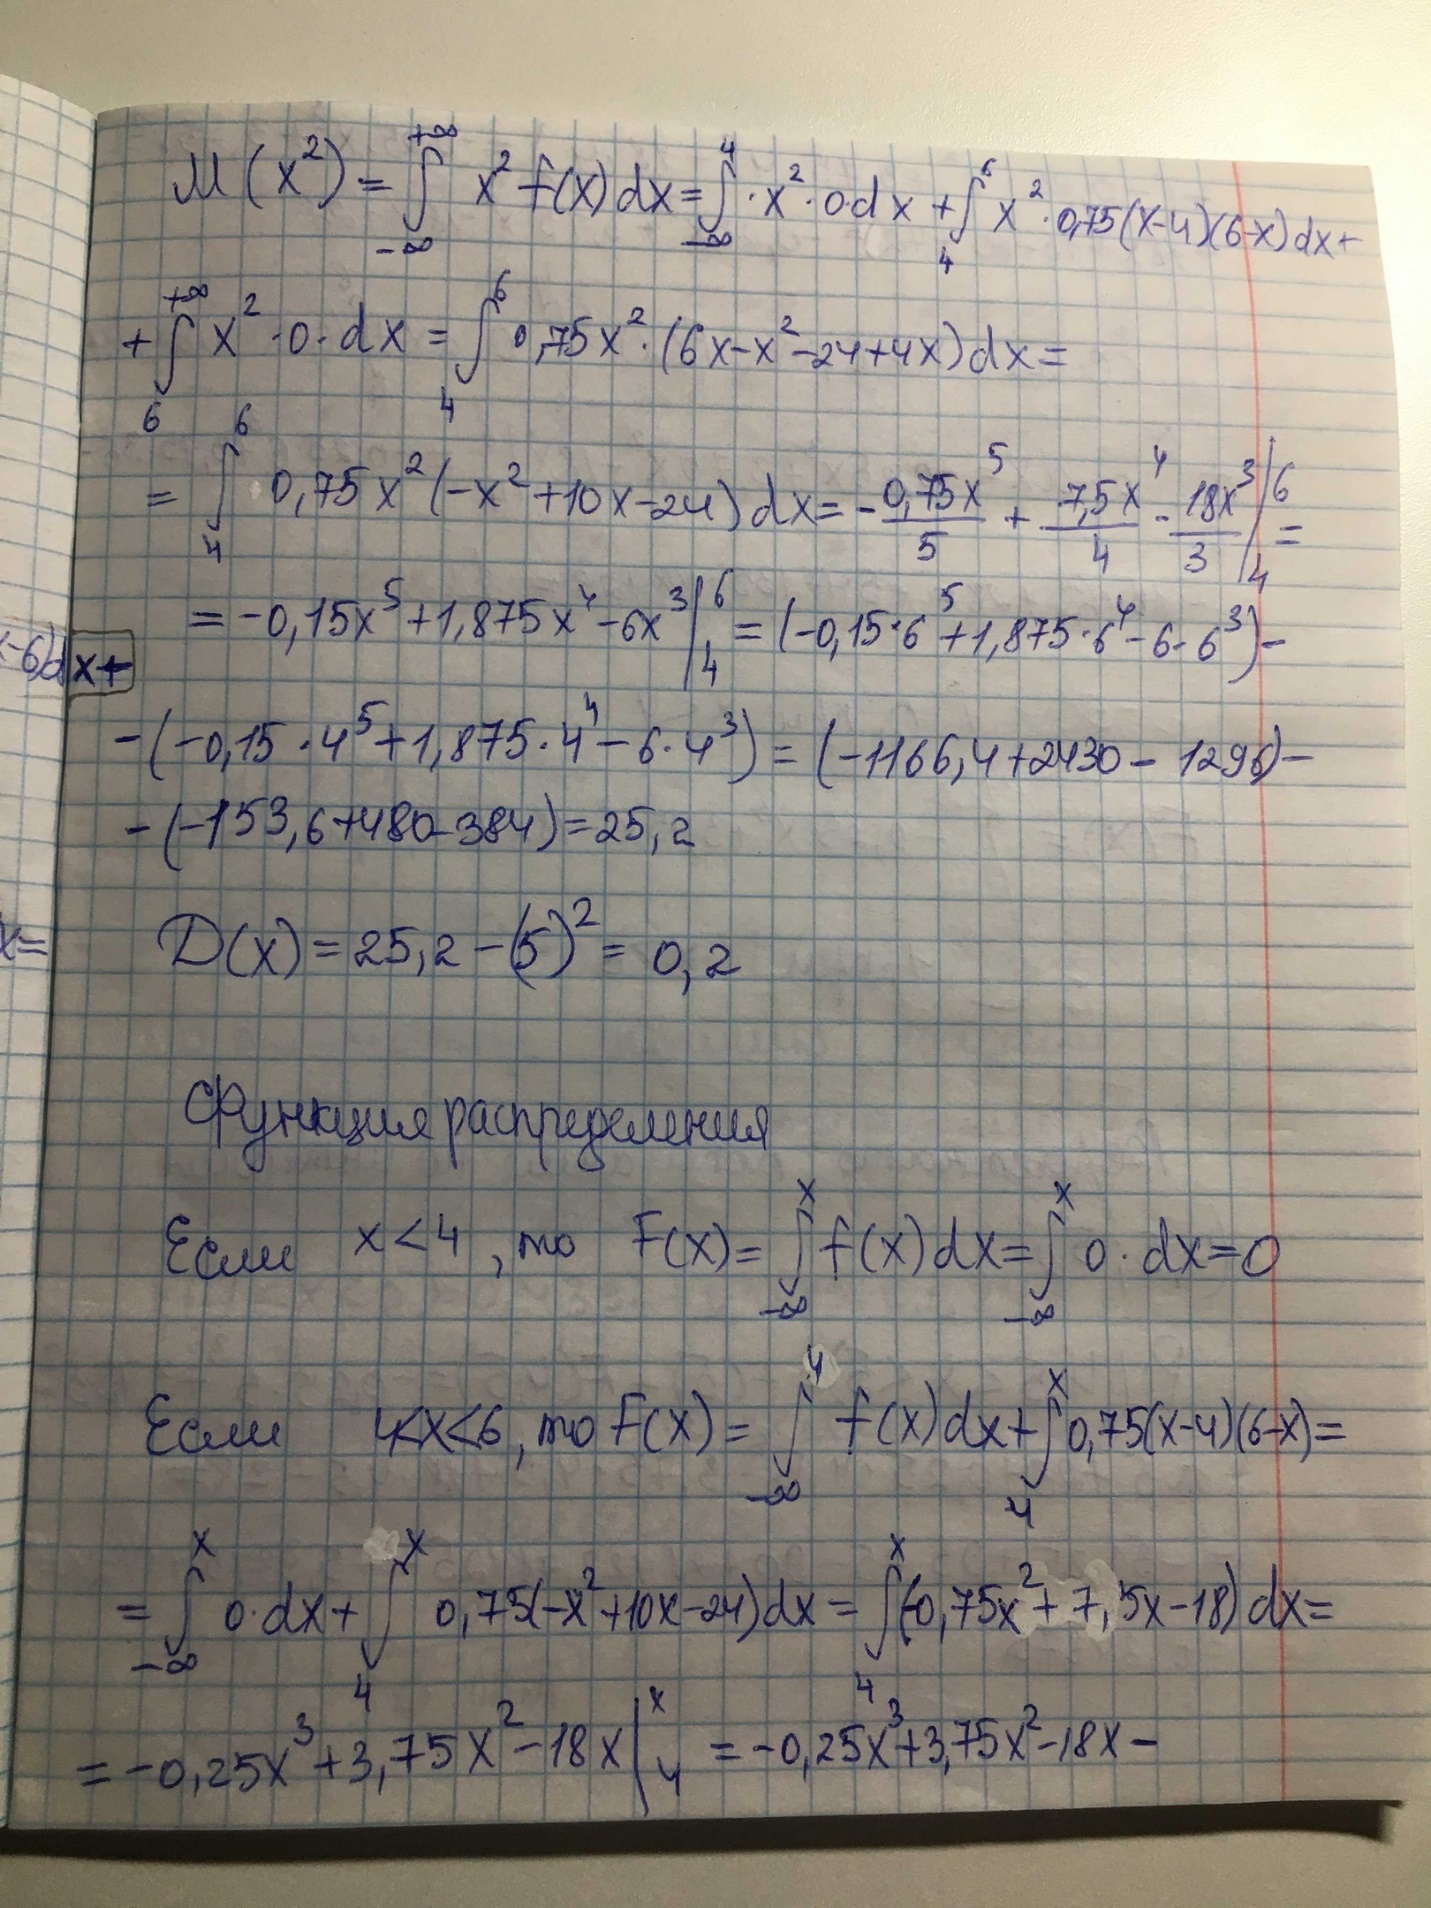 M(x²) = ∫_{-∞}^{+∞} x² f(x) dx = ∫_{-∞}^{4} · x² · 0 · dx + ∫_{4}^{6} x² · 0,75(x-4)(6-x) dx +
+ ∫_{6}^{+∞} x² · 0 · dx = ∫_{4}^{6} 0,75x² · (6x - x² - 24 + 4x) dx =
= ∫_{4}^{6} 0,75x² (-x² + 10x - 24) dx = - 0,75x⁵/5 + 7,5x⁴/4 - 18x³/3 |_{4}^{6} =
= -0,15x⁵ + 1,875x⁴ - 6x³ |_{4}^{6} = (-0,15 · 6⁵ + 1,875 · 6⁴ - 6 · 6³) -
x-6)dx+
- (-0,15 · 4⁵ + 1,875 · 4⁴ - 6 · 4³) = (-1166,4 + 2430 - 1296) -
- (-153,6 + 480 - 384) = 25,2
x=
D(x) = 25,2 - (5)² = 0,2
Функция распределения
Если x < 4, то F(x) = ∫_{-∞}^{x} f(x) dx = ∫_{-∞}^{x} 0 · dx = 0
Если 4<x<6, то F(x) = ∫_{-∞}^{4} f(x) dx + ∫_{4}^{x} 0,75(x-4)(6-x) =
= ∫_{-∞}^{x} 0 · dx + ∫_{4}^{x} 0,75(-x² + 10x - 24) dx = ∫_{4}^{x} (-0,75x² + 7,5x - 18) dx =
= -0,25x³ + 3,75x² - 18x |_{4}^{x} = -0,25x³ + 3,75x² - 18x -